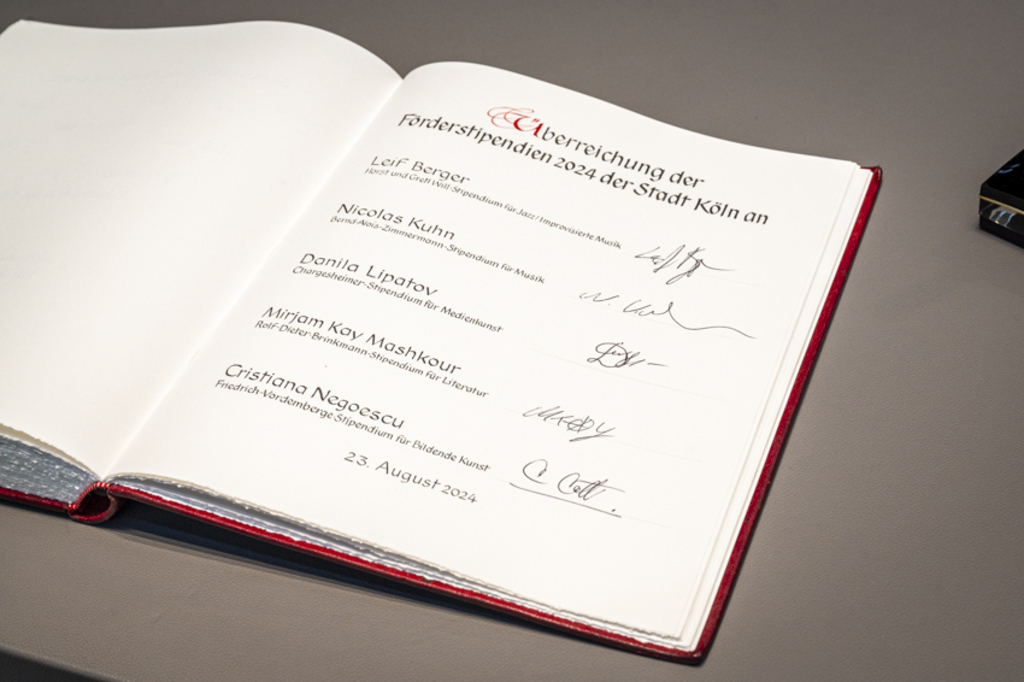 Überreichung der
Förderstipendien 2024 der Stadt Köln an
Leif Berger
Horst und Gretl Will-Stipendium für Jazz/Improvisierte Musik
Nicolas Kuhn
Bernd-Alois-Zimmermann-Stipendium für Musik
Danila Lipatov
Chargesheimer-Stipendium für Medienkunst
Mirjam Kay Mashkour
Rolf-Dieter-Brinkmann-Stipendium für Literatur
Cristiana Negoescu
Friedrich-Vordemberge-Stipendium für Bildende Kunst
23. August 2024